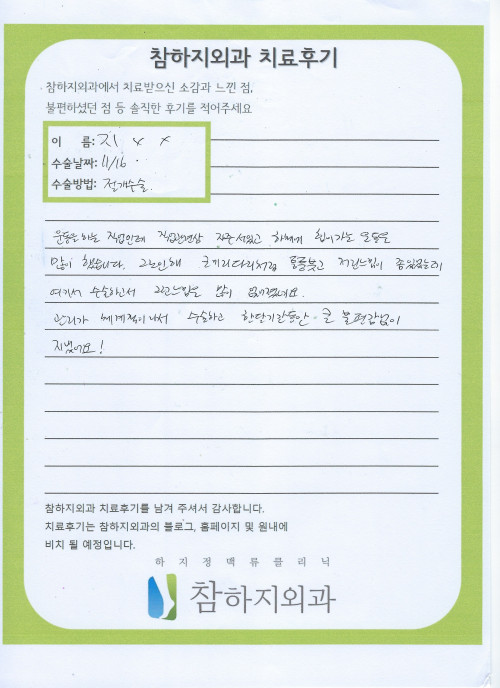 참하지외과 치료후기
참하지외과에서 치료받으신 소감과 느낀 점,
불편하셨던 점 등 솔직한 후기를 적어주세요
이 름: 지 x x
수술날짜: 11/16
수술방법: 절개수술.
운동을 하는 직업인데 직업특성상 자주 서있고 하체에 힘이가는 운동을
많이 했습니다. 그로인해 코끼리다리처럼 퉁퉁붓고 저린느낌이 좀 있었는데
여기서 수술하고서 그런느낌은 많이 없어졌어요.
관리가 체계적이여서 수술하고 한달기간동안 큰 불편감없이
지냈어요!
참하지외과 치료후기를 남겨 주셔서 감사합니다.
치료후기는 참하지외과의 블로그, 홈페이지 및 원내에
비치 될 예정입니다.
하지정맥류클리닉
참하지외과